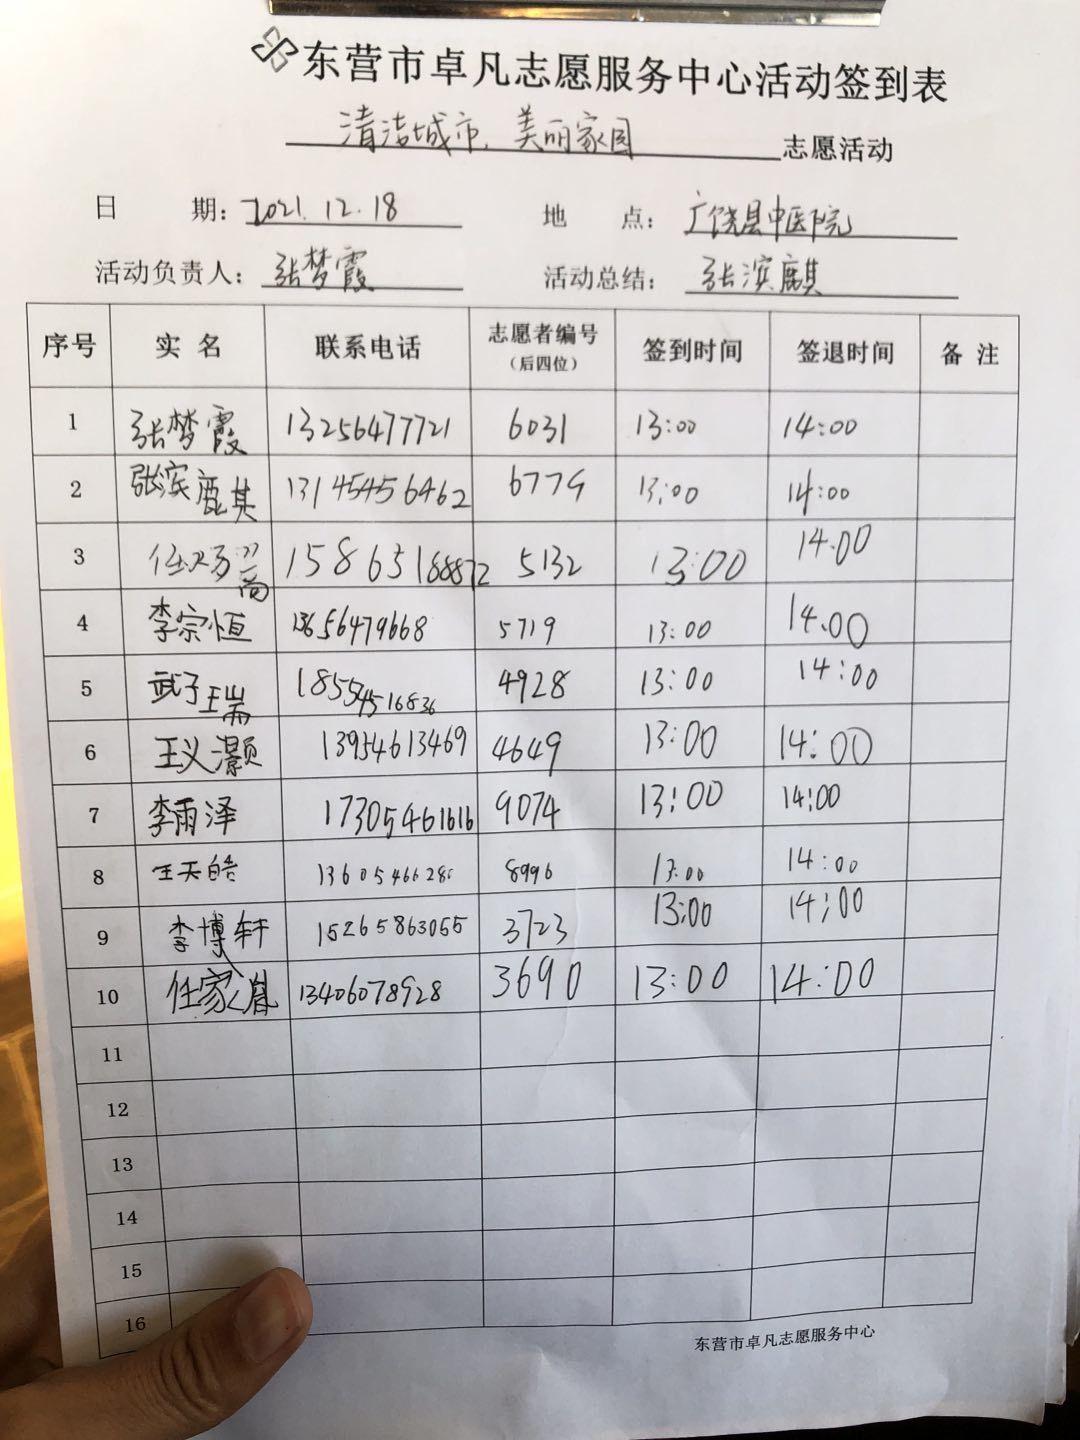 东营市卓凡志愿服务中心活动签到表
清洁城市、美丽家园 志愿活动
日 期: 2021.12.18 地 点: 广饶县中医院
活动负责人: 张梦霞 活动总结: 张滨麒
序号 实 名 联系电话 志愿者编号(后四位) 签到时间 签退时间 备 注
1 张梦霞 13256477721 6031 13:00 14:00
2 张滨麒 13145456462 6779 13:00 14:00
3 5132 13:00 14.00
4 李宗恒 13656479668 5719 13:00 14.00
5 武子瑞 18554516836 4928 13:00 14:00
6 王义灏 13954613469 4649 13:00 14:00
7 李雨泽 17305461616 9074 13:00 14:00
8 王天皓 8996 13:00 14:00
9 李博轩 15265863055 3723 13:00 14:00
10 任家 13406078928 3690 13:00 14:00
11
12
13
14
15
16
东营市卓凡志愿服务中心